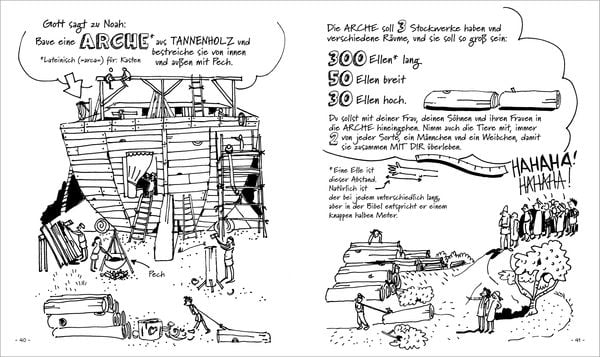 Gott sagt zu Noah:
Baue eine ARCHE* aus TANNENHOLZ und
bestreiche sie von innen
und außen mit Pech.
*Lateinisch (»arca«) für: Kasten
Pech
- 40 -
Die ARCHE soll 3 Stockwerke haben und
verschiedene Räume, und sie soll so groß sein:
300 Ellen* lang
50 Ellen breit
30 Ellen hoch.
Du sollst mit deiner Frau, deinen Söhnen und ihren Frauen in
die ARCHE hineingehen. Nimm auch die Tiere mit, immer
2 von jeder Sorte, ein Männchen und ein Weibchen, damit
sie zusammen MIT DIR überleben.
*Eine Elle ist
dieser Abstand.
Natürlich ist
der bei jedem unterschiedlich lang,
aber in der Bibel entspricht er einem
knappen halben Meter.
HAHAHA!
HAHAHA!
- 41 -